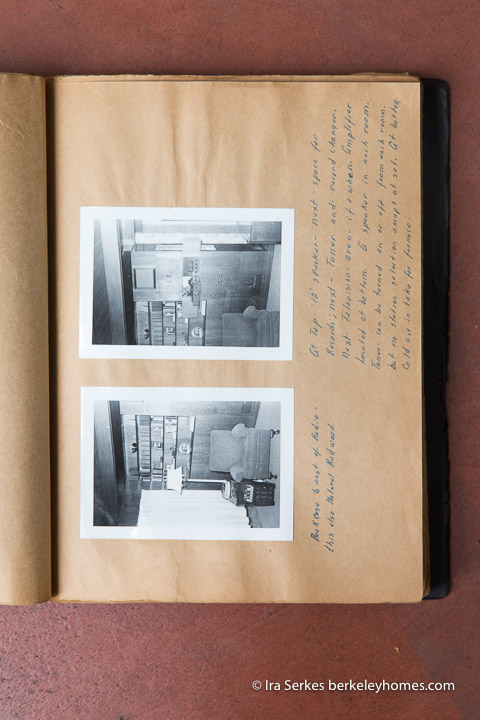 At Top 12" speaker - next - space for
Records; next - Tuner and record changer.
Next Television - area - if & when. Amplifier
located at bottom. A speaker in each room.
Tuner can be turned on or off from each room.
but no station selection except at set. At bottom
Cold air in take for furnace.
Book Case to east of Radio -
this also Natural Redwood.
© Ira Serkes berkeleyhomes.com